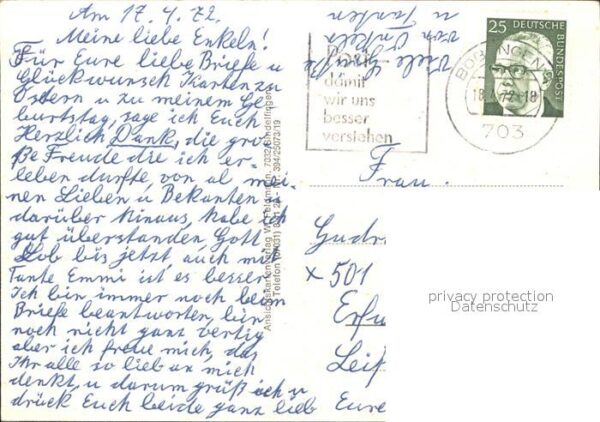 Am 17.4.72.
Meine liebe Enkeln!
Für Eure liebe Briefe u
Glückwunsch Karten zu
Ostern u zu meinem Ge-
burtstag, sage ich Euch
Herzlich Dank, die gro-
ße Freude die ich er-
leben durfte, von al mei-
nen Lieben u Bekanten
darüber hinaus, habe ich
gut überstanden, Gott
Lob bis jetzt auch mit
Tante Emmi ist es besser
Ich bin immer noch beim
Briefe beantworten, bin
noch nicht ganz vertig
aber ich freue mich, das
Ihr alle so lieb an mich
denkt, u darum grüß ich u
drück Euch beide ganz lieb
Eure
Viele Grüße
von Onkels
u Tanten
Ansichtskartenverlag
7032 Sindelfingen
Telefon
damit
wir uns
besser
verstehen
BÖBLINGEN
18. 72-18
703
25 DEUTSCHE
BUNDESPOST
Frau
Gudr
x 501
Erfu
Leip
privacy protection
Datenschutz